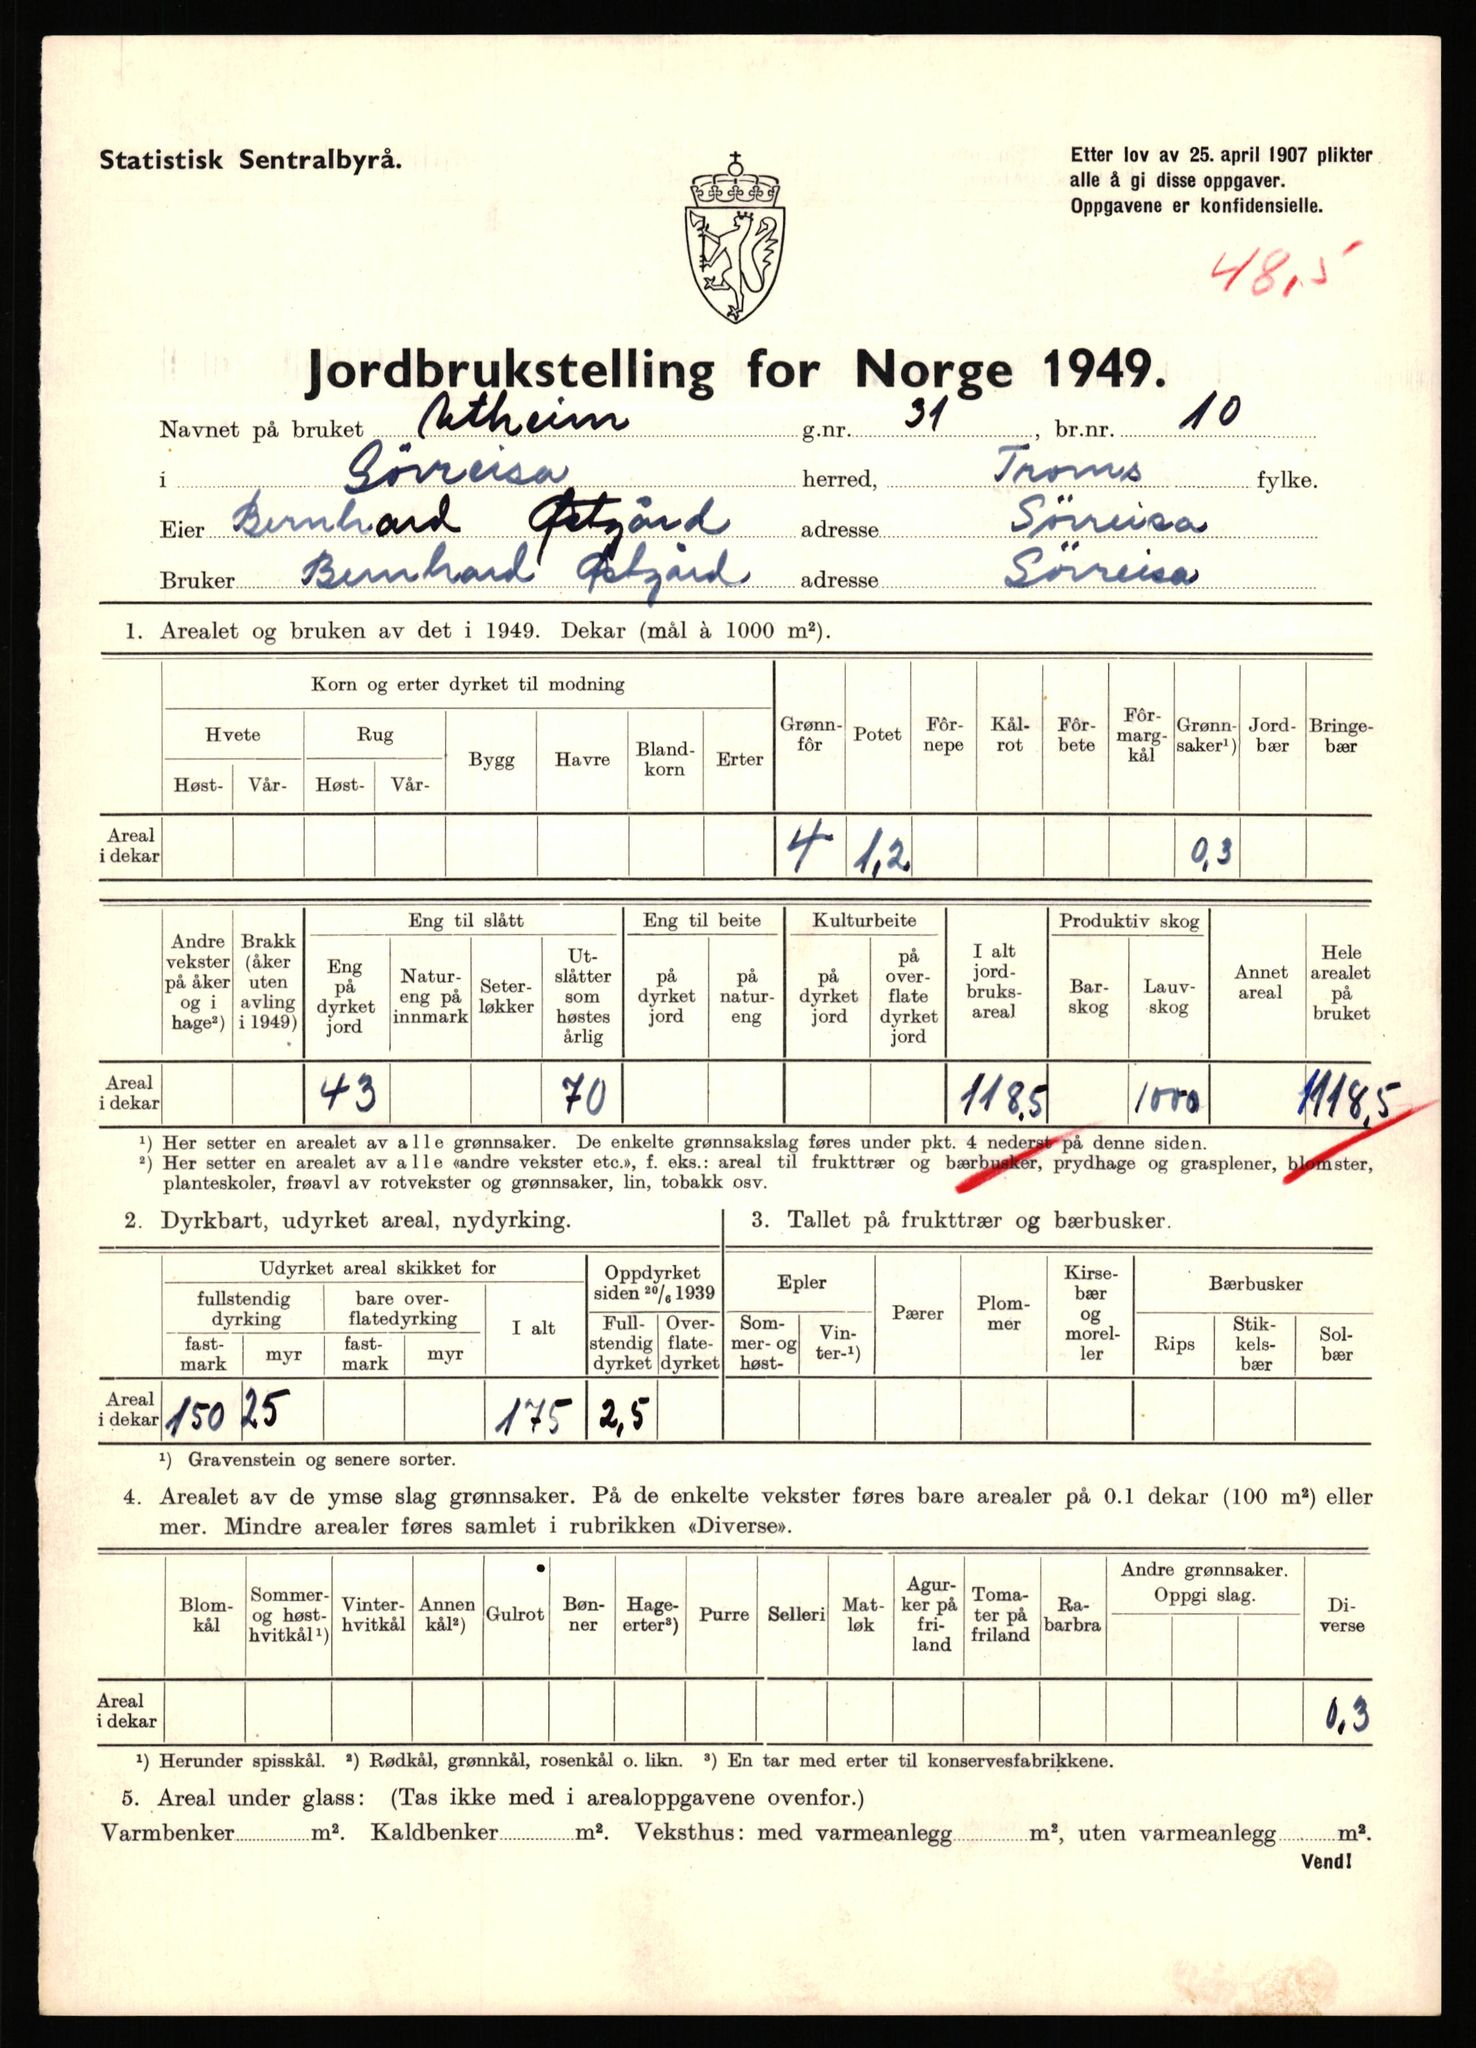 Statistisk Sentralbyrå.
Etter lov av 25. april 1907 plikter
alle å gi disse oppgaver.
Oppgavene er konfidensielle.
48,5
Jordbrukstelling for Norge 1949.
Navnet på bruket Utheim g.nr. 31, br.nr. 10
i Sörreisa herred, Troms fylke.
Eier Bernhard Østgård adresse Sörreisa
Bruker Bernhard Østgård adresse Sörreisa
1. Arealet og bruken av det i 1949. Dekar (mål à 1000 m²).
Korn og erter dyrket til modning
Hvete Rug Bygg Havre Bland-korn Erter Grønn-fôr Potet Fôr-nepe Kål-rot Fôr-bete Fôr-marg-kål Grønn-saker¹) Jord-bær Bringe-bær
Høst- Vår- Høst- Vår-
Areal i dekar 4 1,2 0,3
Eng til slått Eng til beite Kulturbeite Produktiv skog
Andre vekster på åker og i hage²) Brakk (åker uten avling i 1949) Eng på dyrket jord Natur-eng på innmark Seter-løkker Ut-slåtter som høstes årlig på dyrket jord på natur-eng på dyrket jord på over-flate dyrket jord I alt jord-bruks-areal Bar-skog Lauv-skog Annet areal Hele arealet på bruket
Areal i dekar 43 70 118,5 1000 1118,5
¹) Her setter en arealet av alle grønnsaker. De enkelte grønnsakslag føres under pkt. 4 nederst på denne siden.
²) Her setter en arealet av alle «andre vekster etc.», f. eks.: areal til frukttrær og bærbusker, prydhage og grasplener, blomster,
planteskoler, frøavl av rotvekster og grønnsaker, lin, tobakk osv.
2. Dyrkbart, udyrket areal, nydyrking.
Udyrket areal skikket for Oppdyrket siden 20/6 1939
fullstendig dyrking bare over-flatedyrking I alt Full-stendig dyrket Over-flate-dyrket
fast-mark myr fast-mark myr
Areal i dekar 150 25 175 2,5
¹) Gravenstein og senere sorter.
3. Tallet på frukttrær og bærbusker.
Epler Pærer Plom-mer Kirse-bær og morel-ler Bærbusker
Som-mer- og høst- Vin-ter-¹) Rips Stik-kels-bær Sol-bær
4. Arealet av de ymse slag grønnsaker. På de enkelte vekster føres bare arealer på 0.1 dekar (100 m²) eller
mer. Mindre arealer føres samlet i rubrikken «Diverse».
Blom-kål Sommer- og høst-hvitkål¹) Vinter-hvitkål Annen kål²) Gulrot Bøn-ner Hage-erter³) Purre Selleri Mat-løk Agur-ker på fri-land Toma-ter på friland Ra-barbra Andre grønnsaker. Oppgi slag. Di-verse
Areal i dekar 0,3
¹) Herunder spisskål. ²) Rødkål, grønnkål, rosenkål o. likn. ³) En tar med erter til konservesfabrikkene.
5. Areal under glass: (Tas ikke med i arealoppgavene ovenfor.)
Varmbenker m². Kaldbenker m². Veksthus: med varmeanlegg m², uten varmeanlegg m².
Vend!